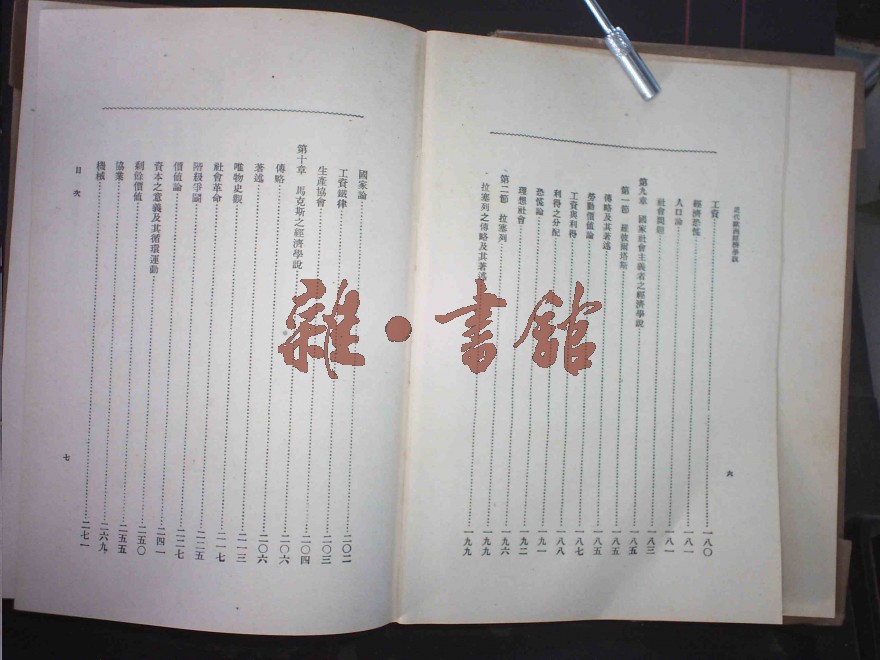 近代歐洲經濟學說
工資 一八〇
經濟恐慌 一八一
人口論 一八一
社會問題 一八三
第九章 國家社會主義者之經濟學說 一八五
第一節 羅彼爾塔斯 一八五
傳略及其著述 一八五
勞動價值論 一八七
工資與利得 一八八
利得之分配 一九一
恐慌論 一九二
理想社會 一九六
第二節 拉塞列 一九九
拉塞列之傳略及其著述 一九九
六
國家論 二〇二
工資鐵律 二〇三
生產協會 二〇四
第十章 馬克斯之經濟學說 二〇六
傳略 二〇六
著述 二一三
唯物史觀 二一七
社會革命 二二五
階級爭鬪 二二七
價值論 二四一
資本之意義及其循環運動 二五〇
剩餘價值 二五五
協業 二六九
機械 二七一
目次
七
雜·書館